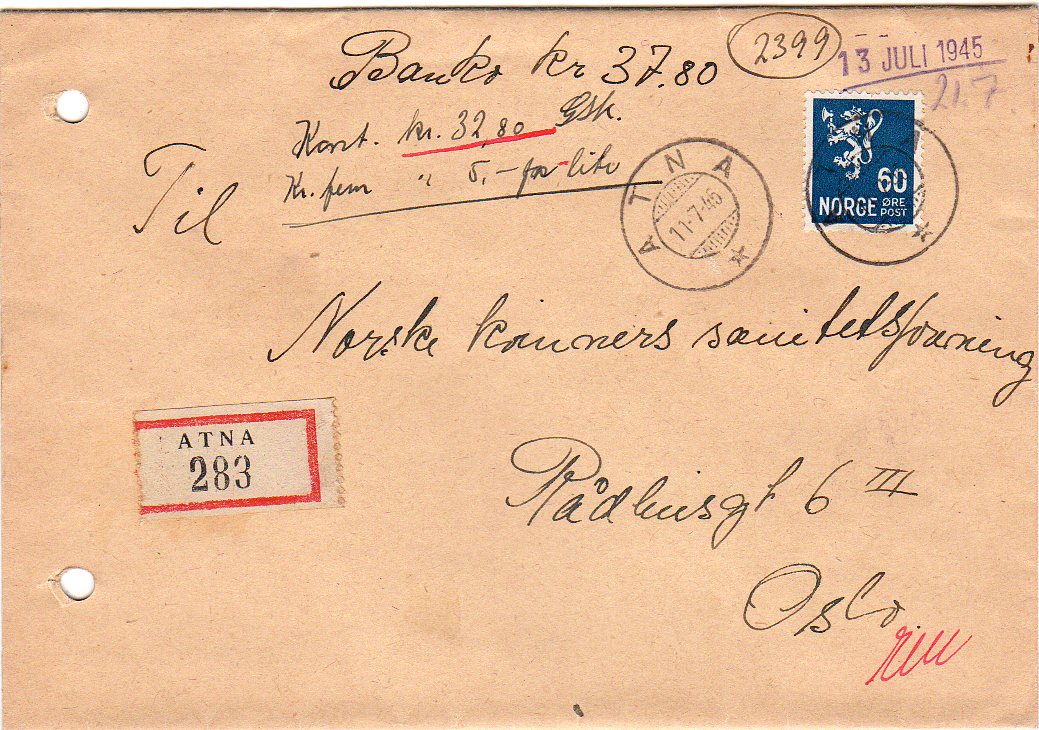 Banko kr 37.80
2399
13 JULI 1945
21.7
Kont. kr. 32,80 Gsk.
Kr. fem " 5,- for lite
Til
ATNA
11-7-46
60
NORGE ØRE POST
Norske kvinners sanitetsforening
ATNA
283
Rådhusgt 6 III
Oslo